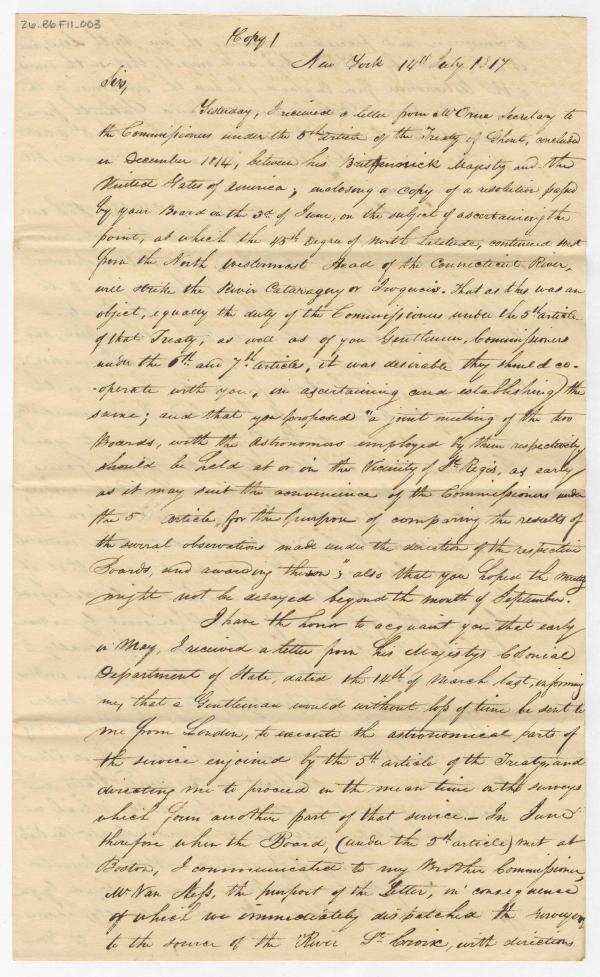 Z6-B6 F11-003
(Copy)
New York 14th July 1817
Sirs,
Yesterday, I received a letter from Mr Orne Secretary to
the Commissioners under the 5th article of the Treaty of Ghent, concluded
in December 1814, between his Majesty and the
United States of America; inclosing a copy of a resolution passed
by your Board on the 3d of June, on the subject of ascertaining the
point, at which the 45th Degree of North Latitude, continued West
from the North westernmost Head of the Connecticut River,
will strike the River Cataraguy or Iroquois. That as this was an
object, equally the duty of the Commissioners under the 5th article
of that Treaty, as well as of you Gentlemen, Commissioners
under the 6th and 7th articles, it was desirable they should co-
-operate with you, in ascertaining and establishing the
same; and that you proposed "a joint meeting of the two
Boards, with the Astronomers employed by them respectively
should be held at or in the Vicinity of St Regis, as early
as it may suit the convenience of the Commissioners under
the 5 article, for the purpose of comparing the results of
the several observations made under the direction of the respective
Boards, and awarding thereon"; also that you hoped the meeting
might not be delayed beyond the month of September.
I have the honor to acquaint you that early
in May, I received a letter from his Majestys Colonial
Department of State, dated the 14th of March last, informing
me, that a Gentleman would without loss of time be sent to
me from London, to execute the astronomical parts of
the service enjoined by the 5th article of the Treaty, and
directing me to proceed in the mean time with surveys
which form another part of that service. - In June
therefore when the Board, (under the 5th article) met at
Boston, I communicated to my Brother Commissioner,
Mr Van Ness, the purport of the Letter, in consequence
of which we immediately dispatched the surveyors
to the source of the River St Croix, with directions